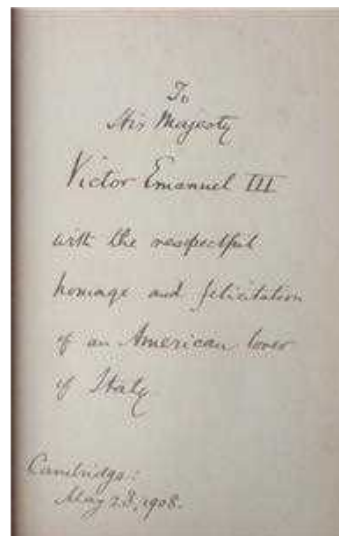 To
His Majesty
Victor Emanuel III
with the respectful
homage and felicitation
of an American lover
of Italy
Cambridge:
May 28, 1908.